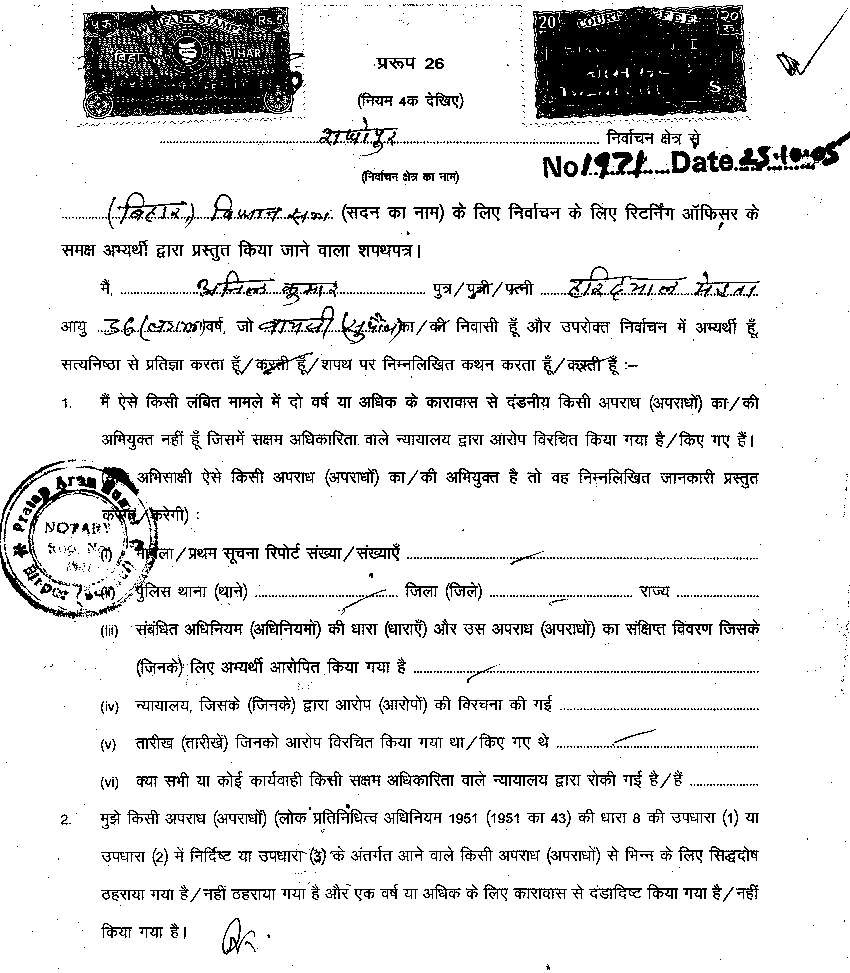 एक WELFARE STAMP Rs.
बिहार BIHAR
20 COURT FEE 20
प्ररूप 26
(नियम 4क देखिए)
राघोपुर निर्वाचन क्षेत्र से
No 1971 Date 25.10.05
(निर्वाचन क्षेत्र का नाम)
(बिहार) विधान सभा (सदन का नाम) के लिए निर्वाचन के लिए रिटर्निंग ऑफिसर के
समक्ष अभ्यर्थी द्वारा प्रस्तुत किया जाने वाला शपथपत्र।
मैं, अनिल कुमार पुत्र/पुत्री/पत्नी
आयु 36 वर्ष, जो (सुपौल) का/की निवासी हूँ और उपरोक्त निर्वाचन में अभ्यर्थी हूँ,
सत्यनिष्ठा से प्रतिज्ञा करता हूँ/करती हूँ/शपथ पर निम्नलिखित कथन करता हूँ/करती हूँ :–
1. मैं ऐसे किसी लंबित मामले में दो वर्ष या अधिक के कारावास से दंडनीय किसी अपराध (अपराधों) का/की
अभियुक्त नहीं हूँ जिसमें सक्षम अधिकारिता वाले न्यायालय द्वारा आरोप विरचित किया गया है/किए गए हैं।
अभिसाक्षी ऐसे किसी अपराध (अपराधों) का/की अभियुक्त है तो वह निम्नलिखित जानकारी प्रस्तुत
करेगा/करेगी) :
NOTARY
(i) मामला/प्रथम सूचना रिपोर्ट संख्या/संख्याएँ
(ii) पुलिस थाना (थाने) जिला (जिले) राज्य
(iii) संबंधित अधिनियम (अधिनियमों) की धारा (धाराएँ) और उस अपराध (अपराधों) का संक्षिप्त विवरण जिसके
(जिनके) लिए अभ्यर्थी आरोपित किया गया है
(iv) न्यायालय, जिसके (जिनके) द्वारा आरोप (आरोपों) की विरचना की गई
(v) तारीख (तारीखें) जिनको आरोप विरचित किया गया था/किए गए थे
(vi) क्या सभी या कोई कार्यवाही किसी सक्षम अधिकारिता वाले न्यायालय द्वारा रोकी गई है/हैं
2. मुझे किसी अपराध (अपराधों) (लोक प्रतिनिधित्व अधिनियम 1951 (1951 का 43) की धारा 8 की उपधारा (1) या
उपधारा (2) में निर्दिष्ट या उपधारा (3) के अंतर्गत आने वाले किसी अपराध (अपराधों) से भिन्न के लिए सिद्धदोष
ठहराया गया है/नहीं ठहराया गया है और एक वर्ष या अधिक के लिए कारावास से दंडादिष्ट किया गया है/नहीं
किया गया है।